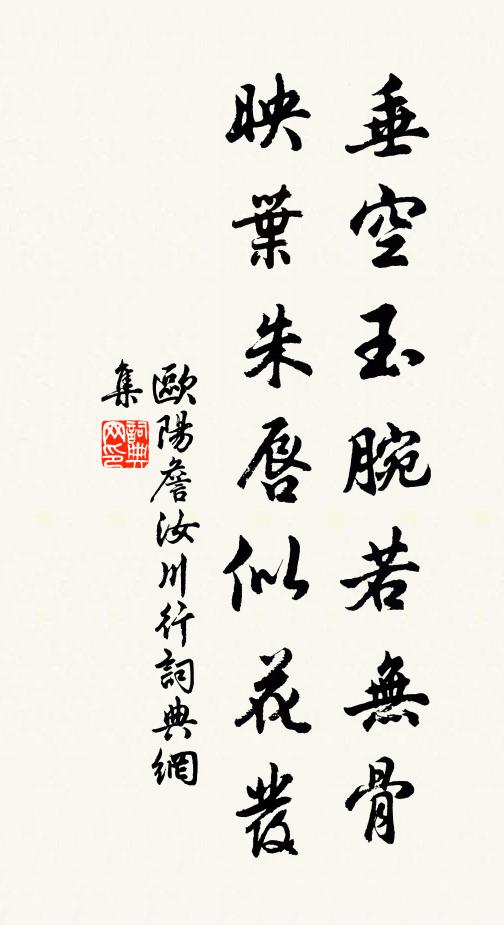 垂空玉腕若無骨
映葉朱唇似花發
歐陽詹汝川行詞典網
集
詞典
网印